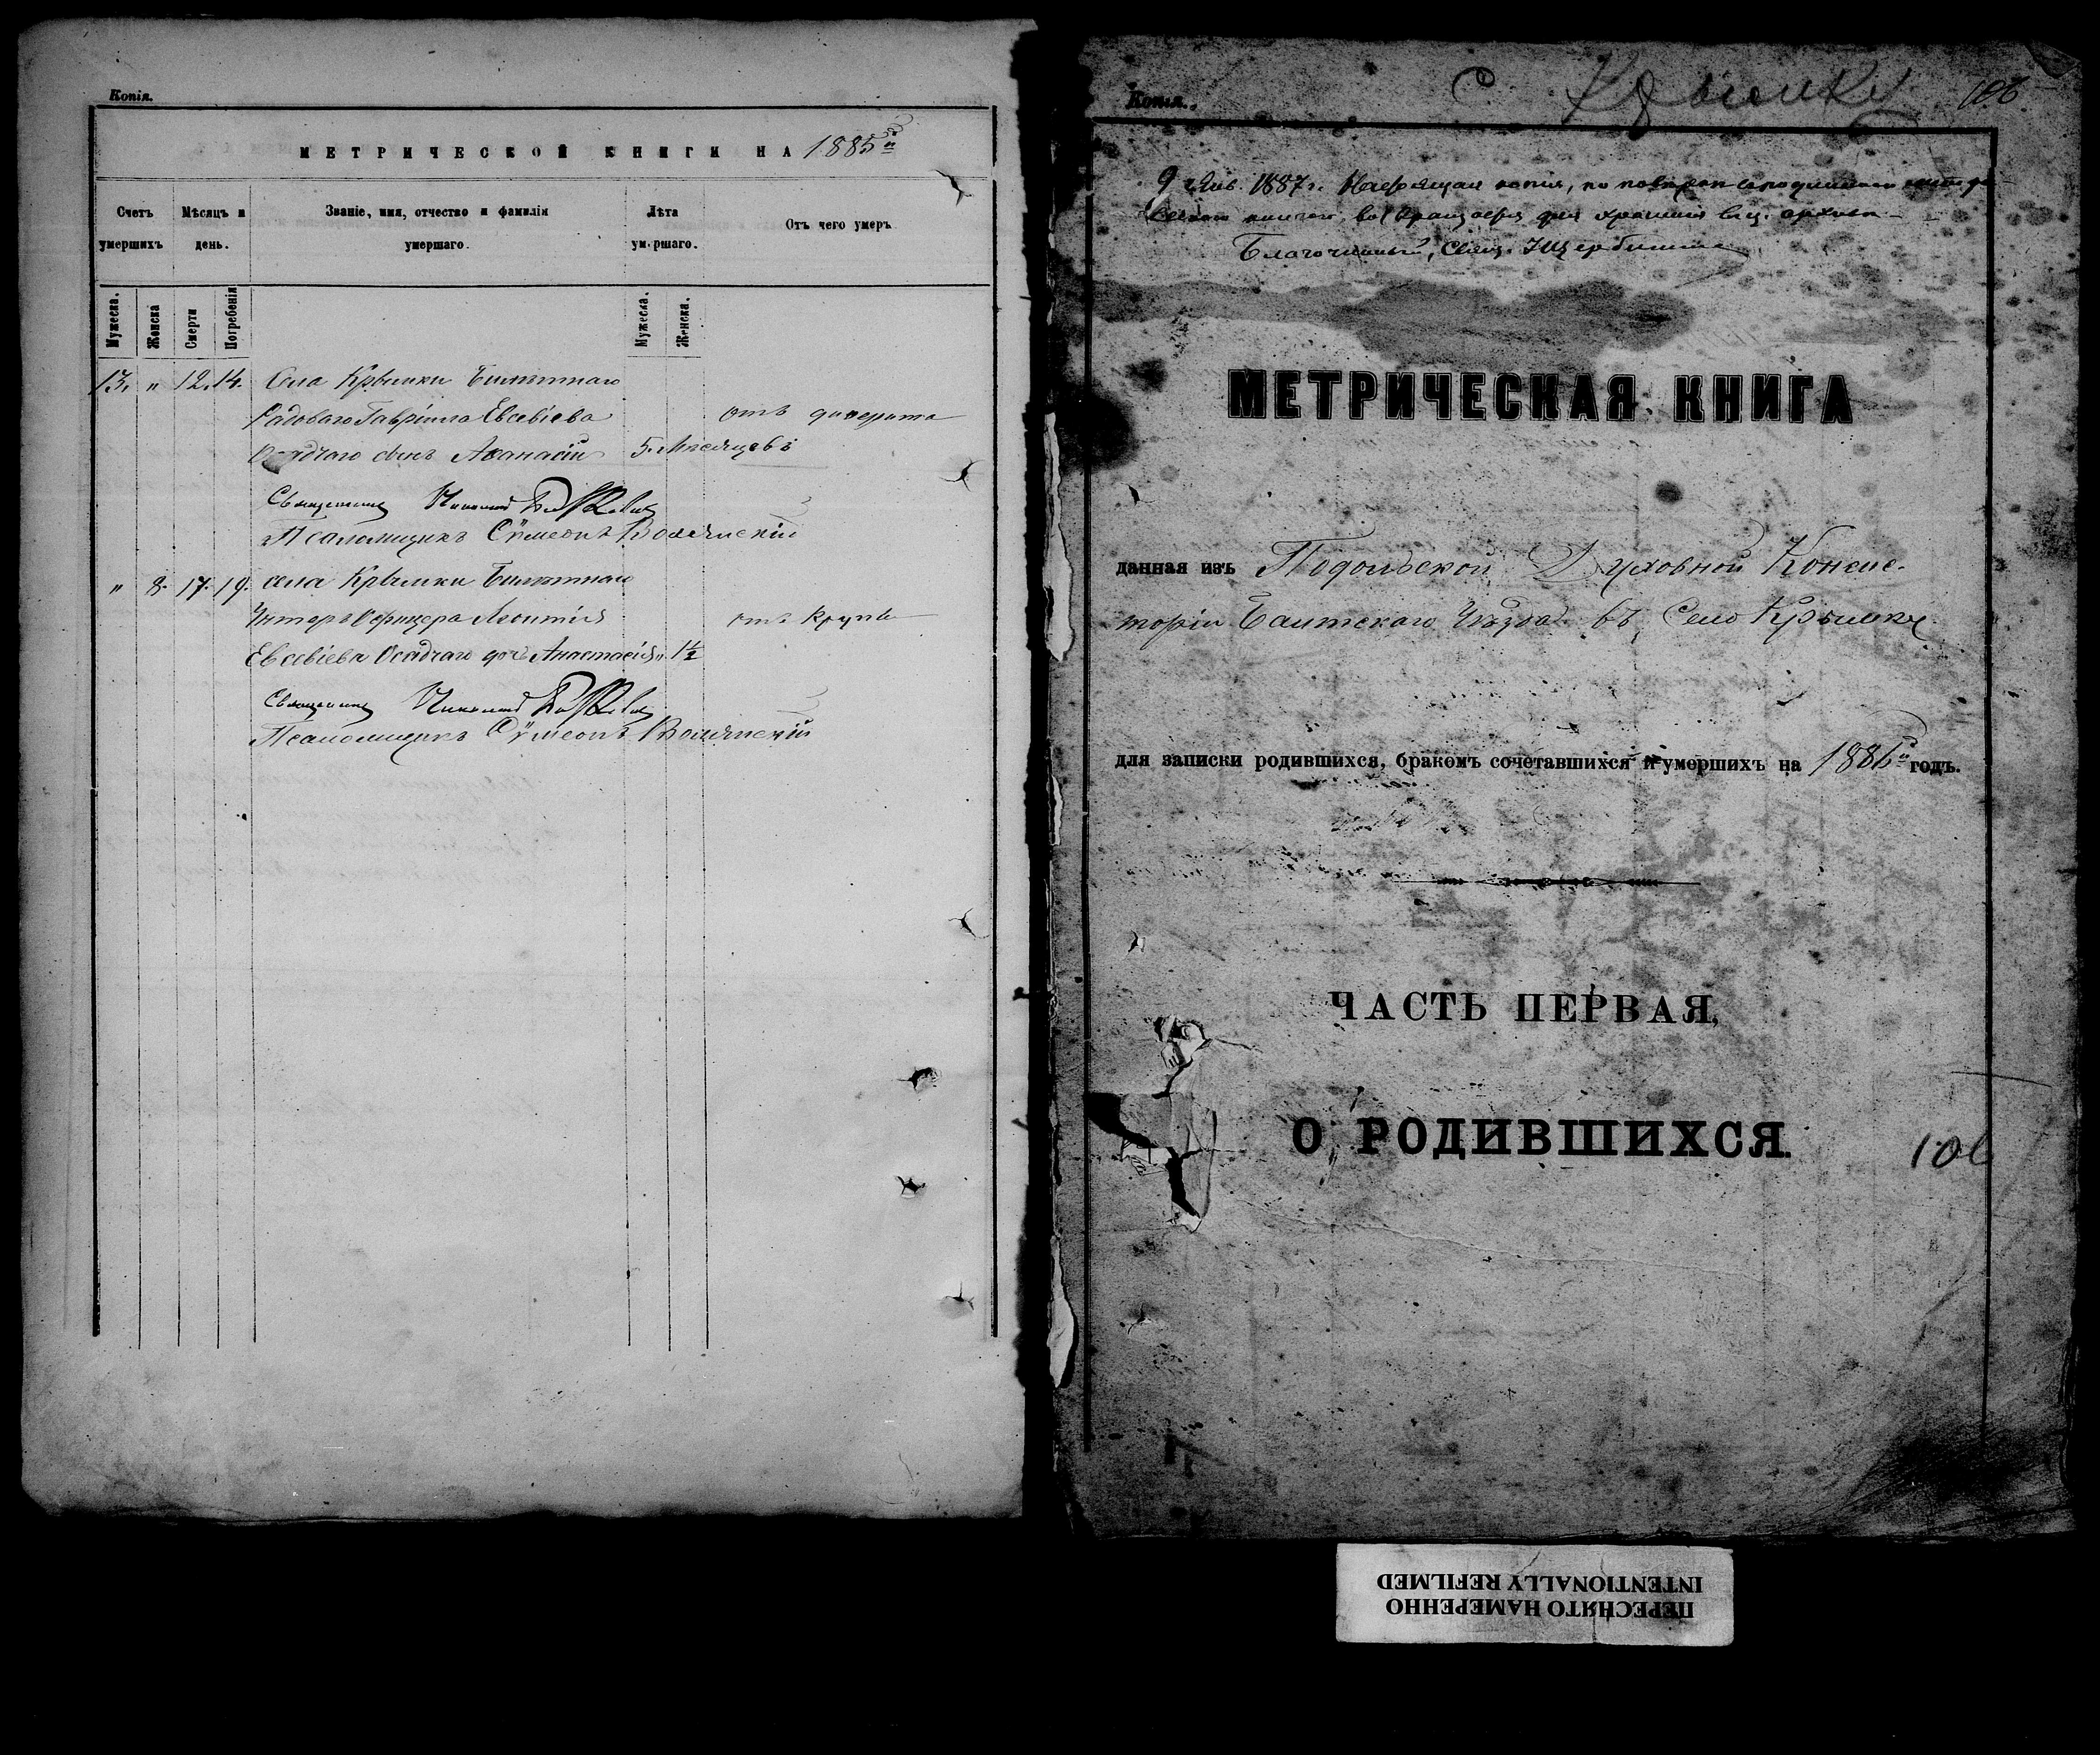 Копія.
МЕТРИЧЕСКОЙ КНИГИ НА 1885й
Счетъ умершихъ
Мѣсяцъ и день.
Званіе, имя, отчество и фамилія умершаго.
Лѣта умершаго.
Отъ чего умеръ
Мужеска.
Женска
Смерти
Погребенія
Мужеска.
Женска.
13. " 12. 14. Села Крымки Билетнаго
Рядоваго Гавріила Евсевіева отъ
Осадчаго сынъ Аѳанасій 5. Мѣсяцевъ
Священникъ Николай
Псаломщикъ Сѵмеонъ Волянскій
" 8. 17. 19. села Крымки Билетнаго
Унтеръ Офицера Леонтія отъ крупа
Евсевіева Осадчаго дочь Анастасія " 1½
Священникъ Николай
Псаломщикъ Сѵмеонъ Волянскій
Копія.
С. Крымку 106
9 Янв. 1887 г. Настоящая копія, по повѣркѣ
Благочинный, Свящ. Щербинъ
МЕТРИЧЕСКАЯ КНИГА
данная изъ Подольской Духовной Консис-
торіи Балтскаго Уѣзда въ Село Крымку
для записки родившихся, бракомъ сочетавшихся и умершихъ на 1886й годъ.
ЧАСТЬ ПЕРВАЯ,
О РОДИВШИХСЯ.
106
ПЕРЕСНЯТО НАМЕРЕННО
INTENTIONALLY REFILMED